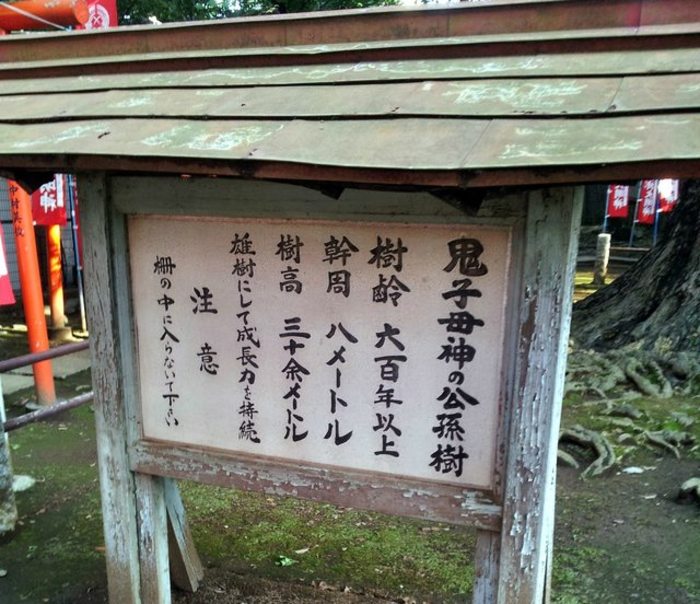 鬼子母神の公孫樹
樹齢 六百年以上
幹周 八メートル
樹高 三十余メトル
雄樹にして成長力を持続
注意
柵の中に入らないで下さい